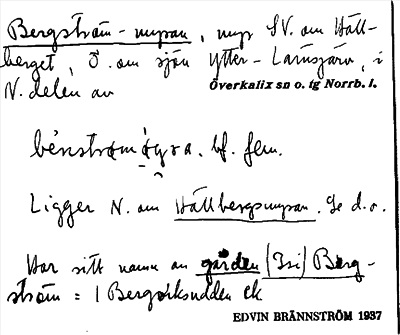 Bergström-myran, myr SV. om Häll-
berget, Ö. om sjön Ytter-Lansjärv, i
N. delen av
Överkalix sn o. tg Norrb. l.
bf. fem.
Ligger N. om Hällbergsmyran. Se d.o.
Har sitt namn av gården (Isi) Berg-
ström = 1 Bergviksudden EK
EDVIN BRÄNNSTRÖM 1937